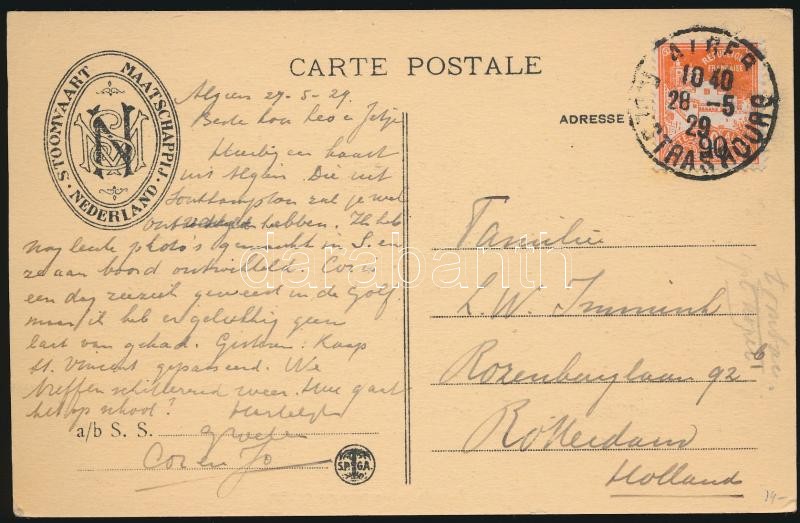 CARTE POSTALE
STOOMVAART MAATSCHAPPIJ
NEDERLAND
ADRESSE
REPUBLIQUE
FRANCAISE
ALGER
10 40
28 -5
29
90
STRASBOURG
Algiers 27-5-29
Beste Leo en Jetje
Hierbij een kaart
uit Algiers. Die uit
Southampton zal je wel
ontvangen hebben. Ik heb
nog leuke photo's gemaakt in S. en
ze aan boord ontwikkeld. Cor is
een dag zeeziek geweest in de Golf.
maar ik heb er gelukkig geen
last van gehad. Gisteren Kaap
St. Vincent gepasseerd. We
treffen schitterend weer. Hoe gaat
het op school? Hartelijke
a/b S. S. groeten
Cor en Jo
S.P. G.A.
Familie
L. W. Immink
Rozenburglaan 92
Rotterdam
Holland
6
14-
darabanth